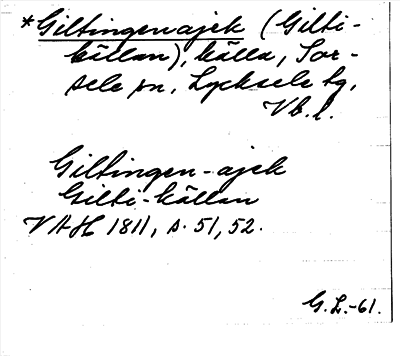 *Giltingenajek (Gilti-
källan), källa, Sor-
sele sn, Lycksele tg,
Vb.l.
Giltingen-ajek
Gilti-källan
VAH 1811, s. 51, 52.
G.L.-61.